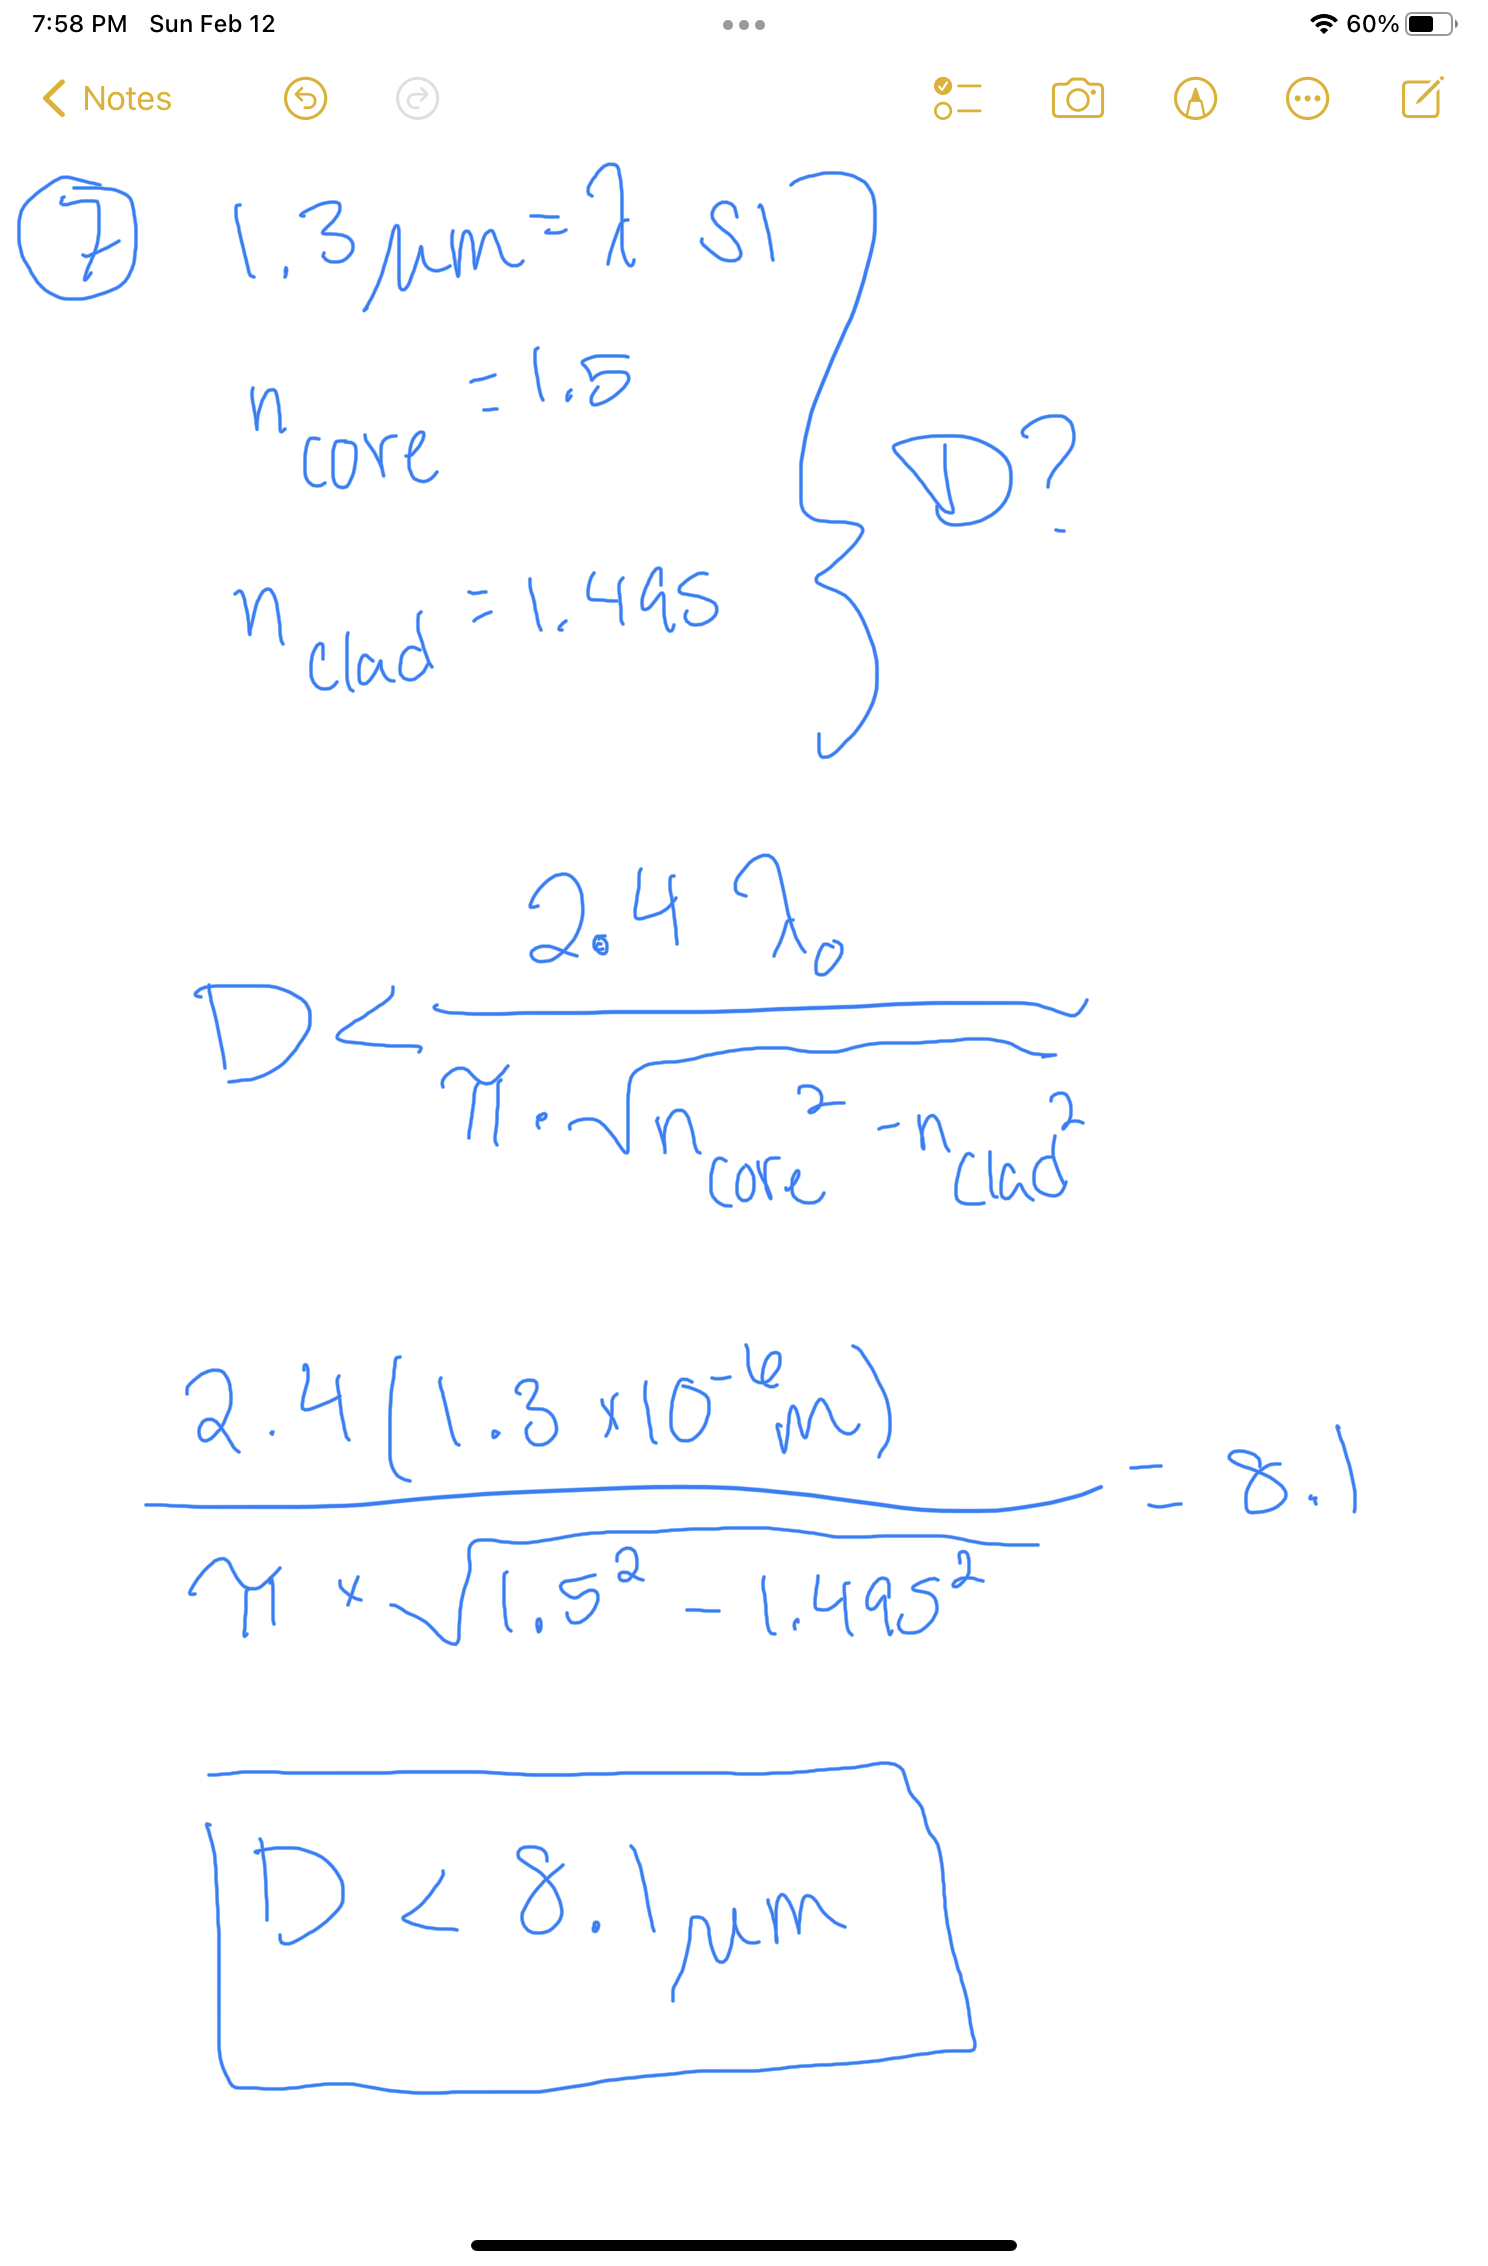 7:58 PM Sun Feb 12
60%
Notes
7 1.3 μm = λ SI
n core = 1.5
D?
n clad = 1.495
2.4 λ₀
D <
π · √n core² - n clad²
2.4 (1.3 x10⁻⁶ m)
= 8.1
π x √1.5² - 1.495²
D < 8.1 μm